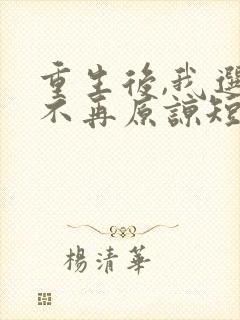 重生後,我選
不再原諒短
楊清華